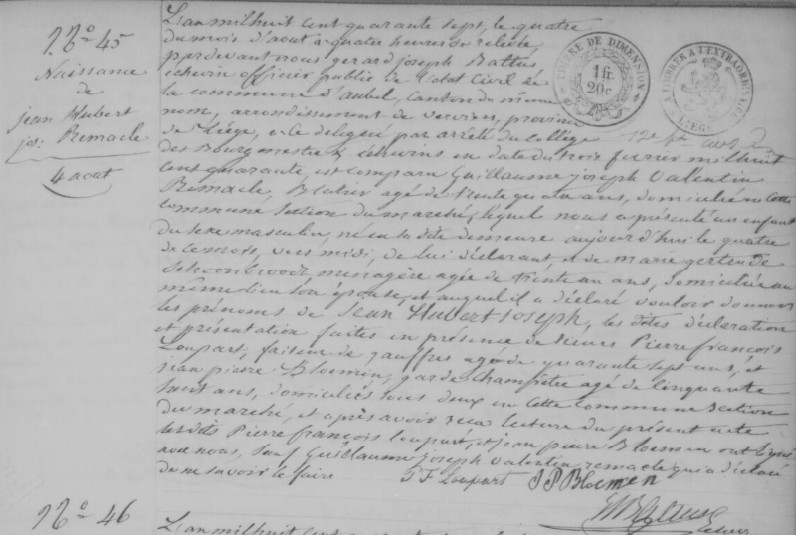 N.º 45
Naissance
de
jean Hubert
jos: Remacle
4 aout
L'an mil huit cent quarante sept, le quatre
du mois d'aout a quatre heures de relevée,
pardevant nous gerard joseph
échevin officier public de l'état Civil de
la commune d'aubel, canton du même
nom, arrondissement de verviers, province
de Liége, et le délégué par arrêté du Collége
des Bourgmestre & échevins en date du trois fevrier mil huit
cent quarante, est comparu Guillaume joseph Valentin
Remacle, Blatier agé de trente quatre ans, domicilié en cette
commune section du marché, lequel nous a présenté un enfant
du sexe masculin, né en sa dite demeure aujourd'hui le quatre
de ce mois, vers midi, de lui déclarant et de marie gertrude
ménagère agée de trente un ans, domiciliée au
même lieu son épouse, et auquel il a déclaré vouloir donner
les prénoms de Jean Hubert Joseph, les dites déclaration
et présentation faites en présence de sieurs Pierre françois
Loupart, faiseur de gauffres agé de quarante sept ans, et
jean pierre Bloemen, garde champêtre agé de cinquante
huit ans, domiciliés tous deux en cette commune section
du marché, et après avoir reçu lecture du présent acte
lesdits Pierre françois loupart, et jean pierre Bloemen ont signé
avec nous, sauf Guillaume joseph Valentin remacle qui a déclaré
de ne savoir le faire
P F Loupart J P Bloemen
TIMBRE DE DIMENSION
1 fr.
20 c.
TIMBRES A L'EXTRAORDINAIRE
LIEGE
N.º 46
L'an mil huit cent quarante